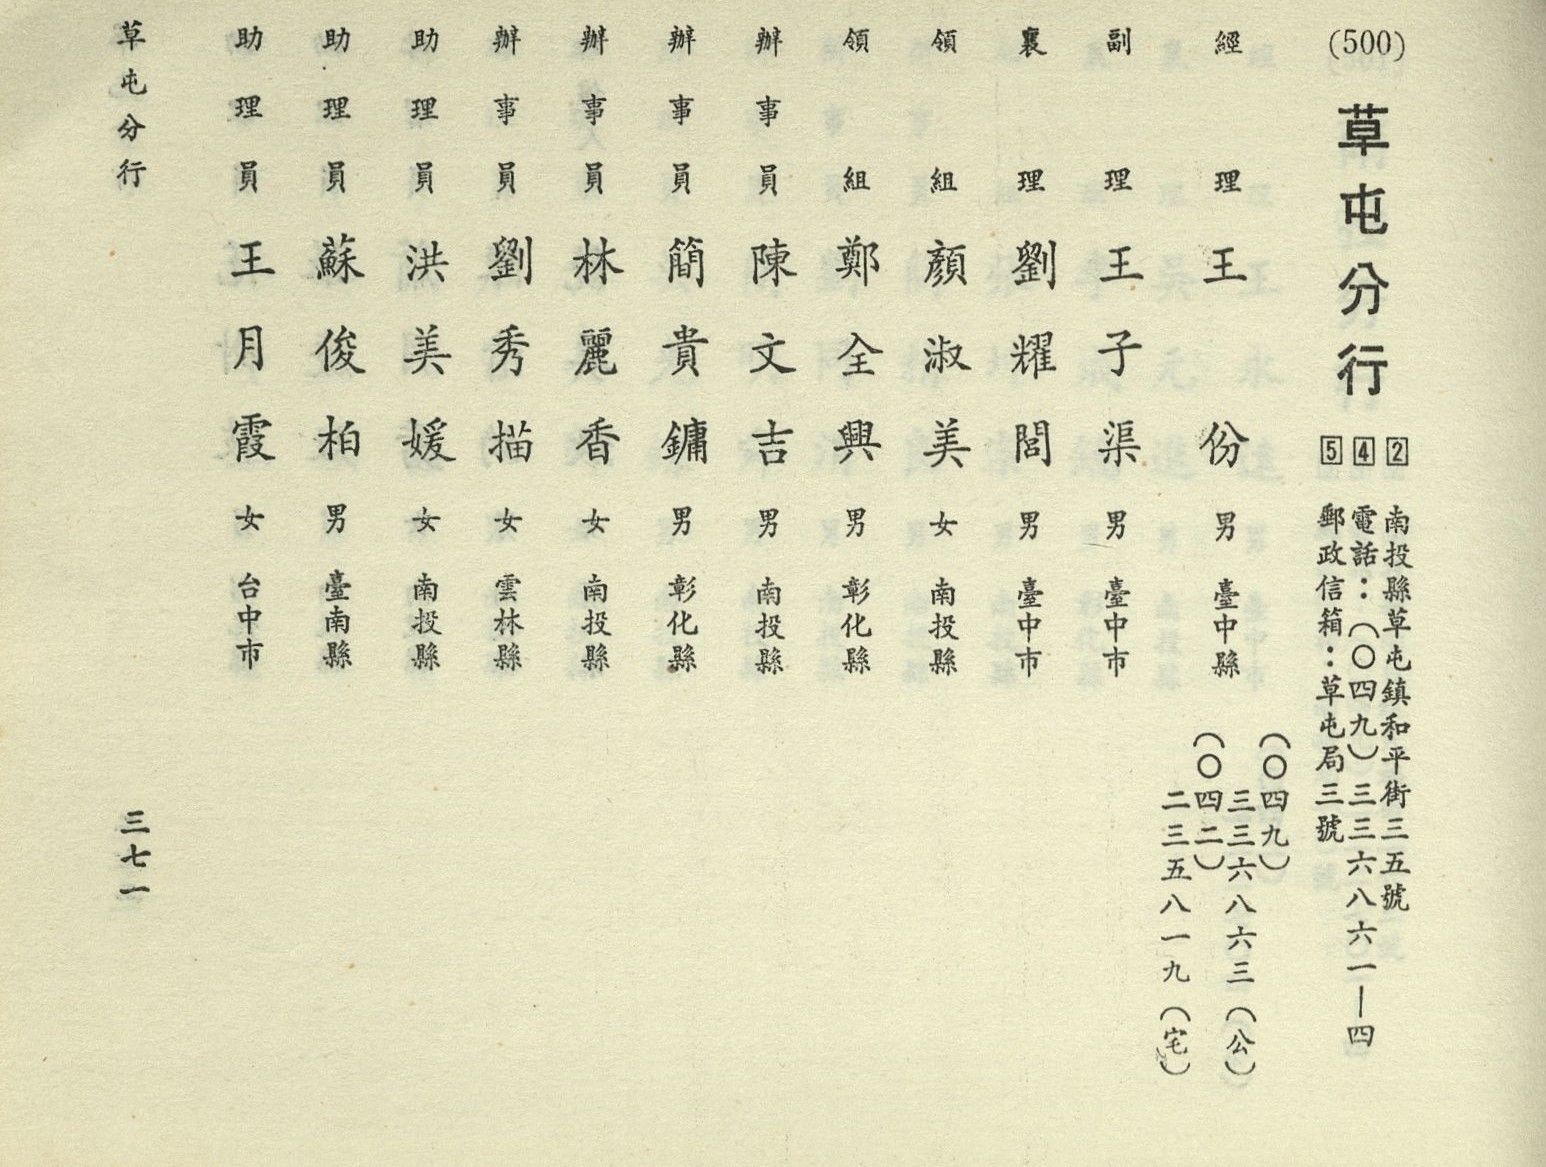 (500)
草屯分行
2 南投縣草屯鎮和平街三五號
4 電話：(〇四九)三三六八六一—四
5 郵政信箱：草屯局三號
經理 王份 男 臺中縣
(〇四九)
三三六八六三(公)
(〇四二)
二三五八一九(宅)
副理 王子渠 男 臺中市
襄理 劉耀閭 男 臺中市
領組 顏淑美 女 南投縣
領組 鄭全興 男 彰化縣
辦事員 陳文吉 男 南投縣
辦事員 簡貴鏞 男 彰化縣
辦事員 林麗香 女 南投縣
辦事員 劉秀描 女 雲林縣
助理員 洪美媛 女 南投縣
助理員 蘇俊柏 男 臺南縣
助理員 王月霞 女 台中市
草屯分行
三七一